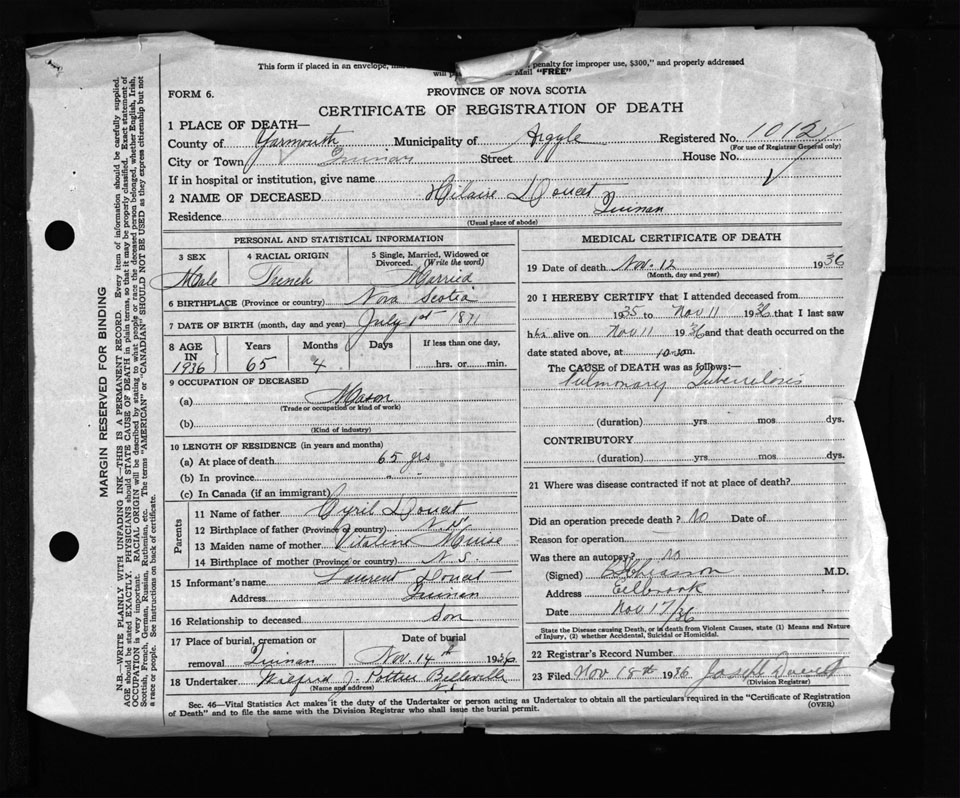 This form if placed in an envelope, penalty for improper use, $300," and properly addressed
Mail "FREE"
FORM 6.
PROVINCE OF NOVA SCOTIA
CERTIFICATE OF REGISTRATION OF DEATH
1 PLACE OF DEATH—
County of Yarmouth Municipality of Argyle Registered No. 1012
(For use of Registrar General only)
City or Town Quinan Street House No.
If in hospital or institution, give name
2 NAME OF DECEASED Hilaire Doucet
Residence Quinan
(Usual place of abode)
PERSONAL AND STATISTICAL INFORMATION
3 SEX 4 RACIAL ORIGIN 5 Single, Married, Widowed or Divorced. (Write the word)
Male French Married
6 BIRTHPLACE (Province or country) Nova Scotia
7 DATE OF BIRTH (month, day and year) July 1st 1871
8 AGE IN 1936 Years 65 Months 4 Days If less than one day, hrs. or min.
9 OCCUPATION OF DECEASED
(a) Mason
(Trade or occupation or kind of work)
(b)
(Kind of industry)
10 LENGTH OF RESIDENCE (in years and months)
(a) At place of death 65 yrs
(b) In province "
(c) In Canada (if an immigrant)
Parents
11 Name of father Cyril Doucet
12 Birthplace of father (Province or country) N.S.
13 Maiden name of mother Vitaline Muise
14 Birthplace of mother (Province or country) N.S.
15 Informant's name Laurent Doucet
Address Quinan
16 Relationship to deceased Son
17 Place of burial, cremation or removal Quinan Date of burial Nov. 14th 1936
18 Undertaker Wilfred J. Pottier Belleville N.S.
(Name and address)
MEDICAL CERTIFICATE OF DEATH
19 Date of death Nov. 12 1936
(Month, day and year)
20 I HEREBY CERTIFY that I attended deceased from
1935 to Nov 11 1936 that I last saw
him alive on Nov 11 1936 and that death occurred on
date stated above, at 10.00 m.
The CAUSE of DEATH was as follows:—
Pulmonary Tuberculosis
(duration) yrs mos dys.
CONTRIBUTORY
(duration) yrs mos dys.
21 Where was disease contracted if not at place of death?
Did an operation precede death? No Date of
Reason for operation
Was there an autopsy? No
(Signed) M.D.
Address Eelbrook
Date Nov 17/36
State the Disease causing Death, or in death from Violent Causes, state (1) Means and Nature
of Injury, (2) whether Accidental, Suicidal or Homicidal.
22 Registrar's Record Number
23 Filed Nov 18th 1936 Joseph Doucet
(Division Registrar)
Sec. 46—Vital Statistics Act makes it the duty of the Undertaker or person acting as Undertaker to obtain all the particulars required in the "Certificate of Registration
of Death" and to file the same with the Division Registrar who shall issue the burial permit. (OVER)
MARGIN RESERVED FOR BINDING
N.B.—WRITE PLAINLY WITH UNFADING INK—THIS IS A PERMANENT RECORD. Every item of information should be carefully supplied.
AGE should be stated EXACTLY. PHYSICIANS should STATE CAUSE OF DEATH in plain terms, so that it may be properly classified. Exact statement of
OCCUPATION is very important. RACIAL ORIGIN will be described by stating to what people or race the deceased person belonged, whether English, Irish,
Scottish, French, German, Russian, Ruthenian, etc. The terms "AMERICAN" or "CANADIAN" SHOULD NOT BE USED as they express citizenship but not
a race or people. See instructions on back of certificate.